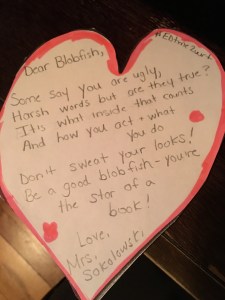 #EDtmr2wrt
Dear Blobfish,
Some say you are ugly,
Harsh words but are they true?
It is what inside that counts
And how you act + what
you do
Don't sweat your looks!
Be a good blobfish - you're
the star of a
book!
Love,
Mrs.
Sokolowski